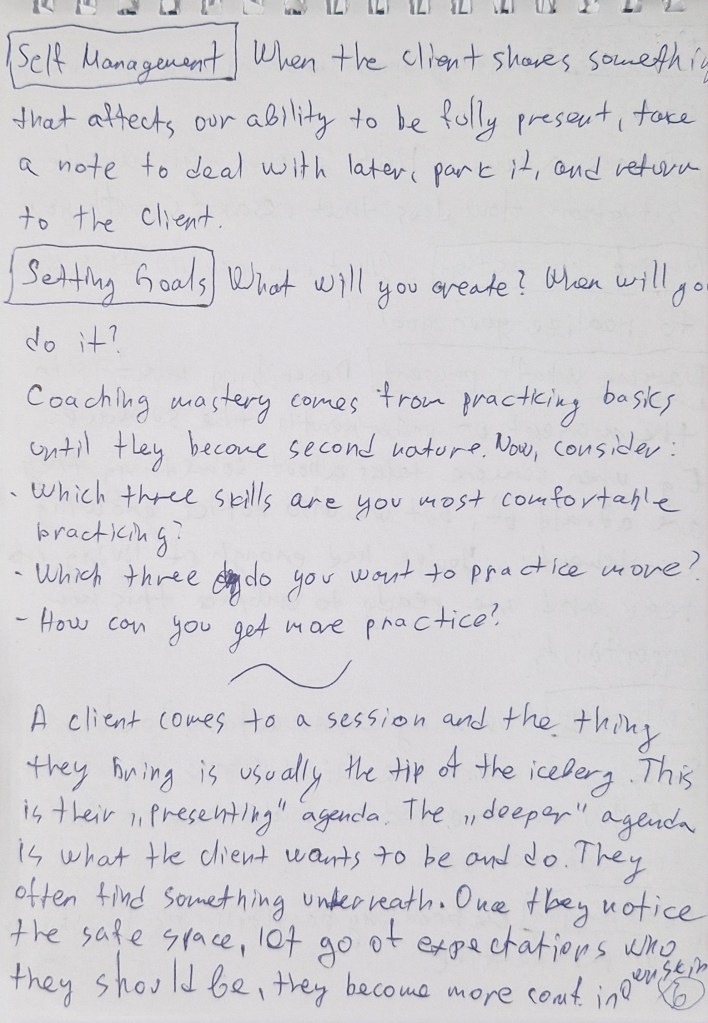 Self Management When the client shares somethin
that affects our ability to be fully present, take
a note to deal with later, park it, and return
to the client.
Setting Goals What will you create? When will yo
do it?
Coaching mastery comes from practicing basics
until they become second nature. Now, consider:
- Which three skills are you most comfortable
practicing?
- Which three do you want to practice more?
- How can you get more practice?
A client comes to a session and the thing
they bring is usually the tip of the iceberg. This
is their „presenting" agenda. The „deeper" agenda
is what the client wants to be and do. They
often find something underneath. Once they notice
the safe space, let go of expectations who
they should be, they become more comf. in own skin
6